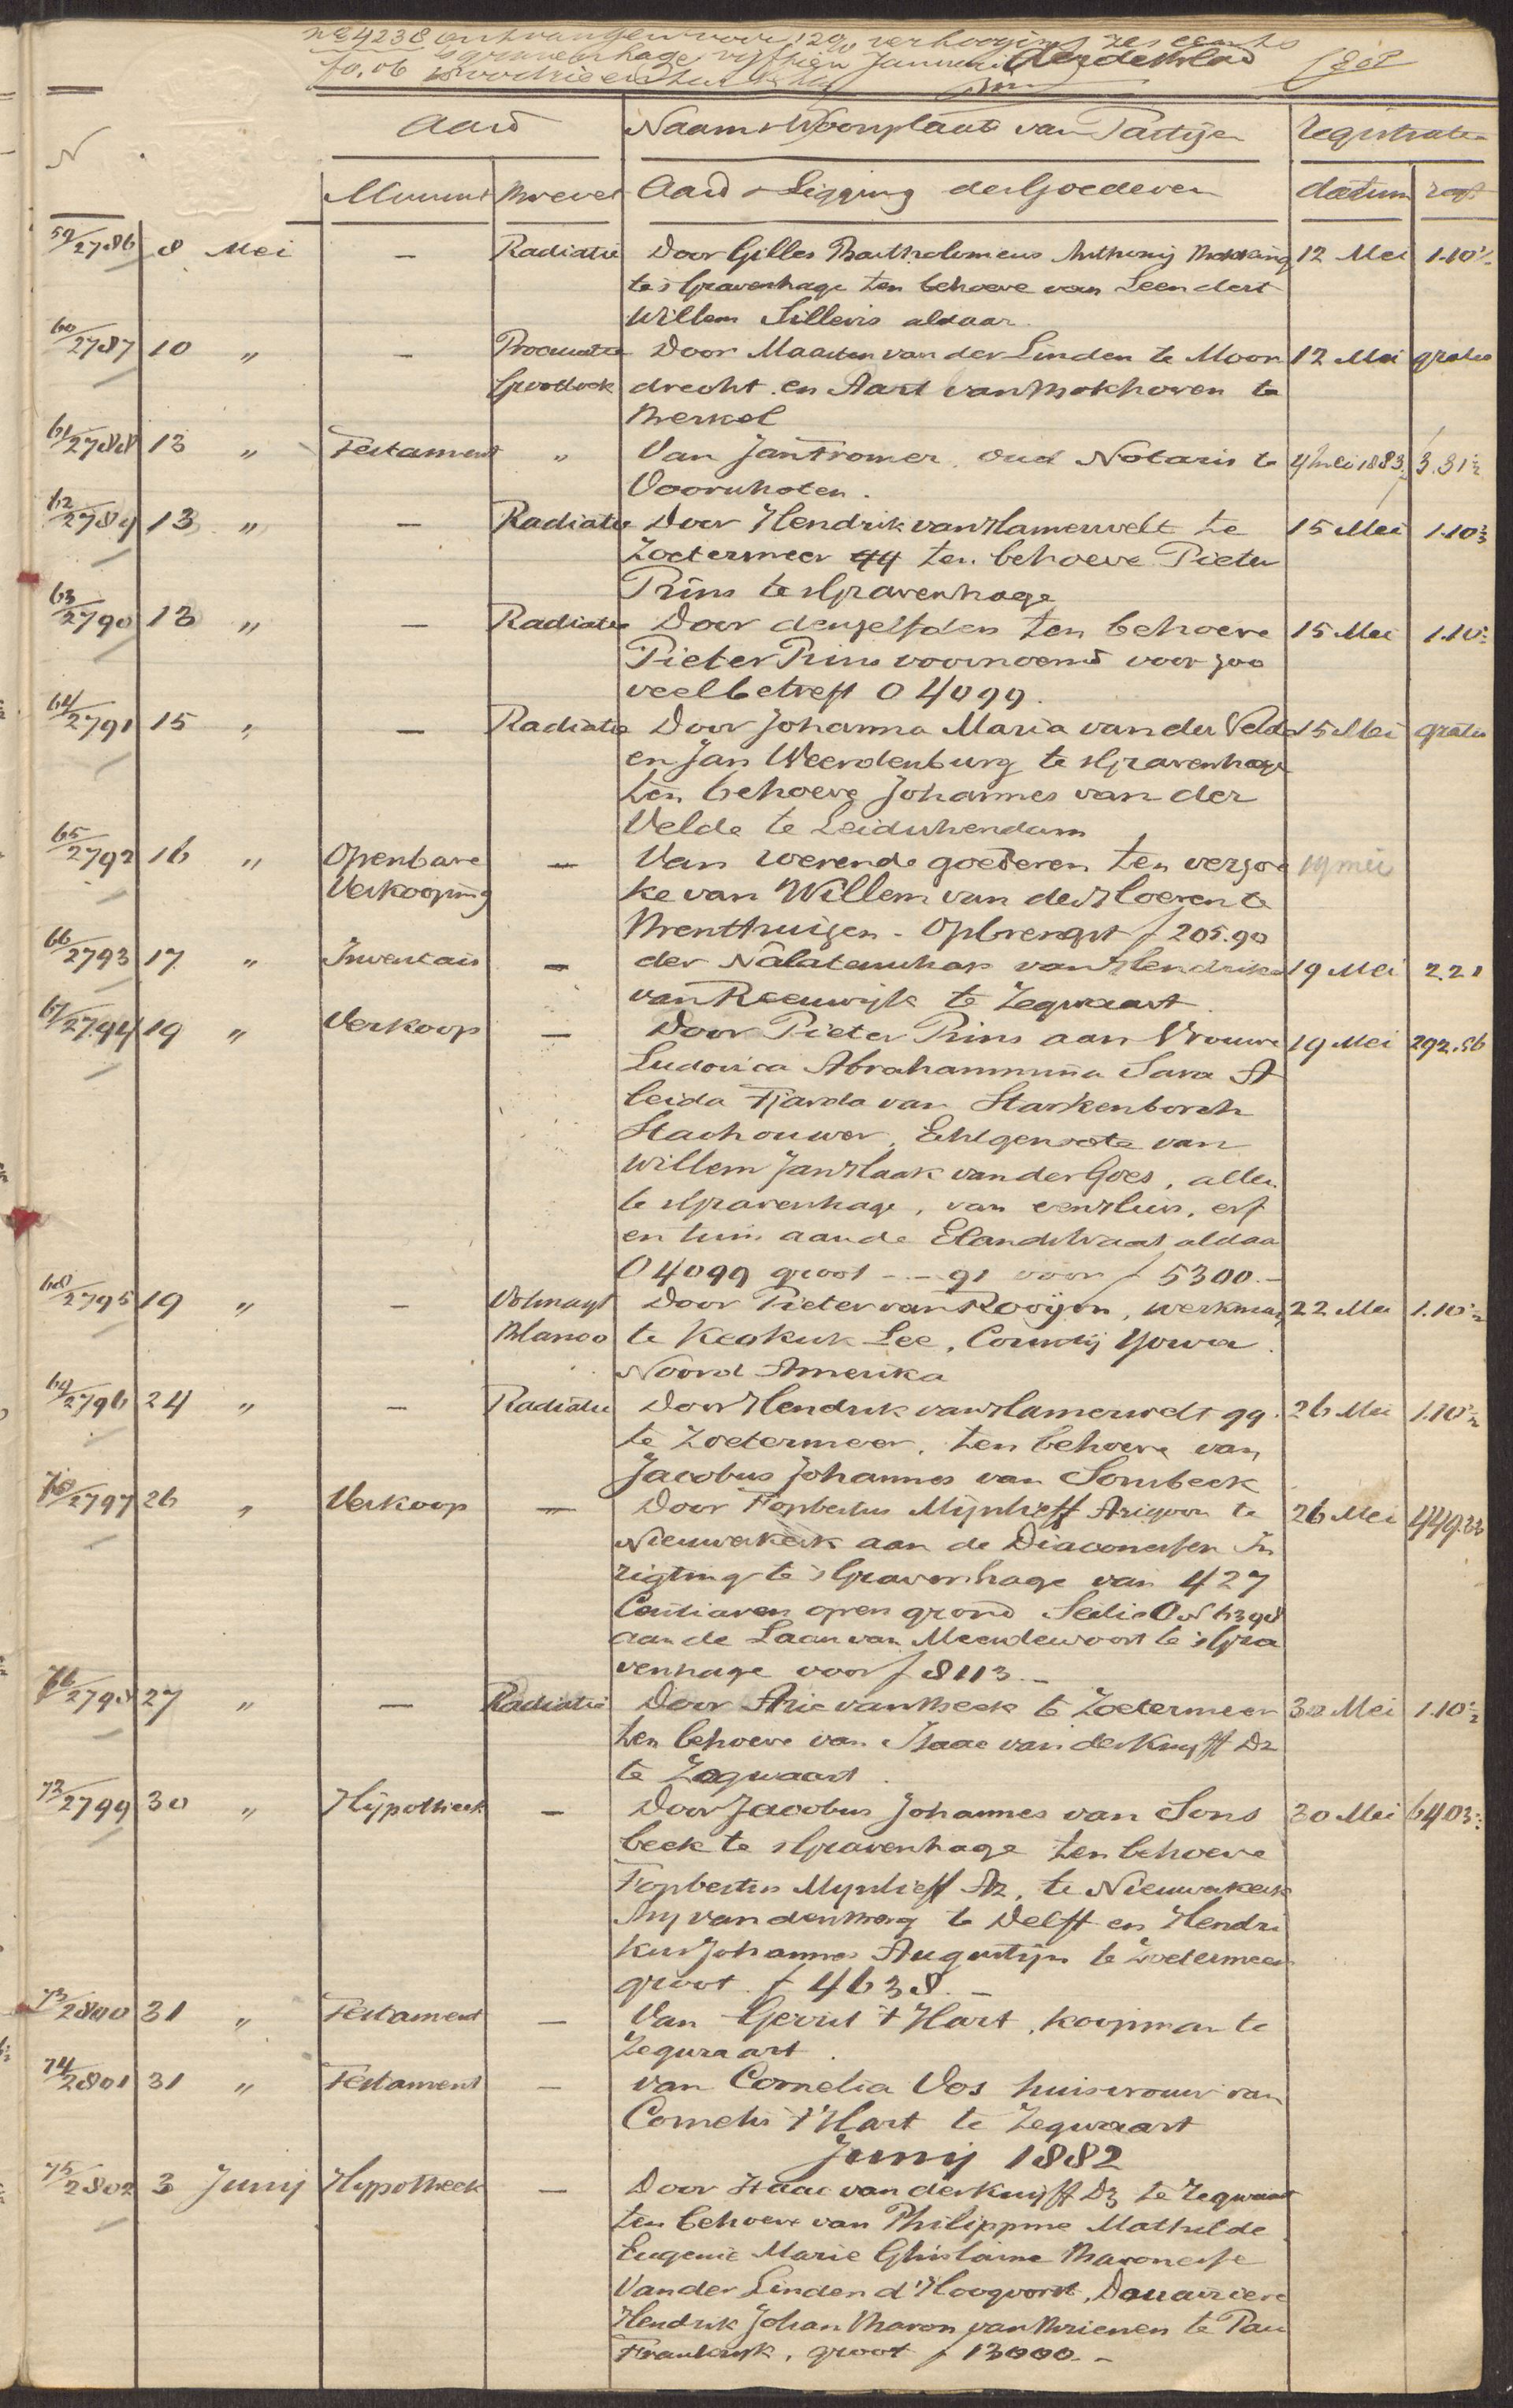 No 4238 ontvangen voor 12 % verhooging zes cents
's Gravenhage vijftien Januari Derde Blad
f 0,06
Aard Naam & Woonplaats van Partijen Registratie
N
Minuut Brevet Aard & Ligging der Goederen datum regt
59/2786 8 Mei — Radiatie Door Gilles Bartholomeus Anthonij 12 Mei 1.10½
te 's Gravenhage ten behoeve van Leendert
Willem Sillevis aldaar.
60/2787 10 " — Procuratie Door Maarten van der Linden te Moor 12 Mei gratis
Grootboek drecht en Aart van Mokhoven te
Berkel
61/2788 13 " Testament " Van Jan Fromer, oud Notaris te 4 Mei 1883. 3.31½
Voorschoten.
62/2789 13 " — Radiatie Door Hendrik van Hamerwelt te 15 Mei 1.10½
Zoetermeer qq ten behoeve Pieter
Prins te s Gravenhage
63/2790 13 " — Radiatie Door denzelfden ten behoeve 15 Mei 1.10½
Pieter Prins voornoemd voor zoo
veel betreft O 4099.
64/2791 15 " — Radiatie Door Johanna Maria van der Velde 15 Mei gratis
en Jan Weerdenburg te s Gravenhage
ten behoeve Johannes van der
Velde te Leidschendam
65/2792 16 " Openbare — Van roerende goederen ten verzoe 19 mei
Verkooping ke van Willem van der Hoeven te
Benthuizen - Opbrengst f 205.90
66/2793 17 " Inventaris — der Nalatenschap van Hendrika 19 Mei 2.21
van Reeuwijk te Zegwaart
67/2794 19 " Verkoop — Door Pieter Prins aan Vrouwe 19 Mei 292.56
Ludovica Abrahammina Sara A
leida Tjarda van Starkenborch
Stachouwer, Echtgenoote van
Willem Jan Haak van der Goes, allen
te s Gravenhage, van een Huis, erf
en tuin aan de Elandstraat aldaar
O 4099 groot - - 91 voor f 5300.-
68/2795 19 " — Volmagt Door Pieter van Rooijen, werkman, 22 Mei 1.10½
Blanco te Keokuk Lee, County Yowa.
Noord Amerika
69/2796 24 " — Radiatie Door Hendrik van Hamerwelt qq. 26 Mei 1.10½
te Zoetermeer, ten behoeve van
Jacobus Johannes van Sonsbeek
70/2797 26 " Verkoop — Door Fopbertus Mijnlieff Ariezoon te 26 Mei 449.33
Nieuwerkerk aan de Diaconessen In
rigting te 's Gravenhage van 427
Centiaren open grond Sectie O No 6398
aan de Laan van Meerdervoort te 's Gra
venhage voor f 8113.-
71/2798 27 " — Radiatie Door Arie van Beek te Zoetermeer 30 Mei 1.10½
ten behoeve van Isaac van der Kruijff Dz
te Zegwaart.
72/2799 30 " Hijpotheek — Door Jacobus Johannes van Sons 30 Mei 64.03½
beek te s Gravenhage ten behoeve
Fopbertus Mijnlieff Az, te Nieuwerkerk
Arij van den Berg te Delft en Hendri
kus Johannes Augustijn te Zoetermeer
groot f 4638.-
73/2800 31 " Testament — Van Gerrit 't Hart, koopman te
Zegwaart.
74/2801 31 " Testament — van Cornelia Vos huisvrouw van
Cornelis 't Hart te Zegwaart
Junij 1882
75/2802 3 Junij Hypotheek — Door Isaac van der Kruijff Dz te Zegwaart
ten behoeve van Philippine Mathilde
Eugenie Marie Ghislaine Baronesse
Van der Linden d'Hoogvorst, Douairiere
Hendrik Johan Baron van Brienen te Pau
Frankrijk, groot f 13000.-